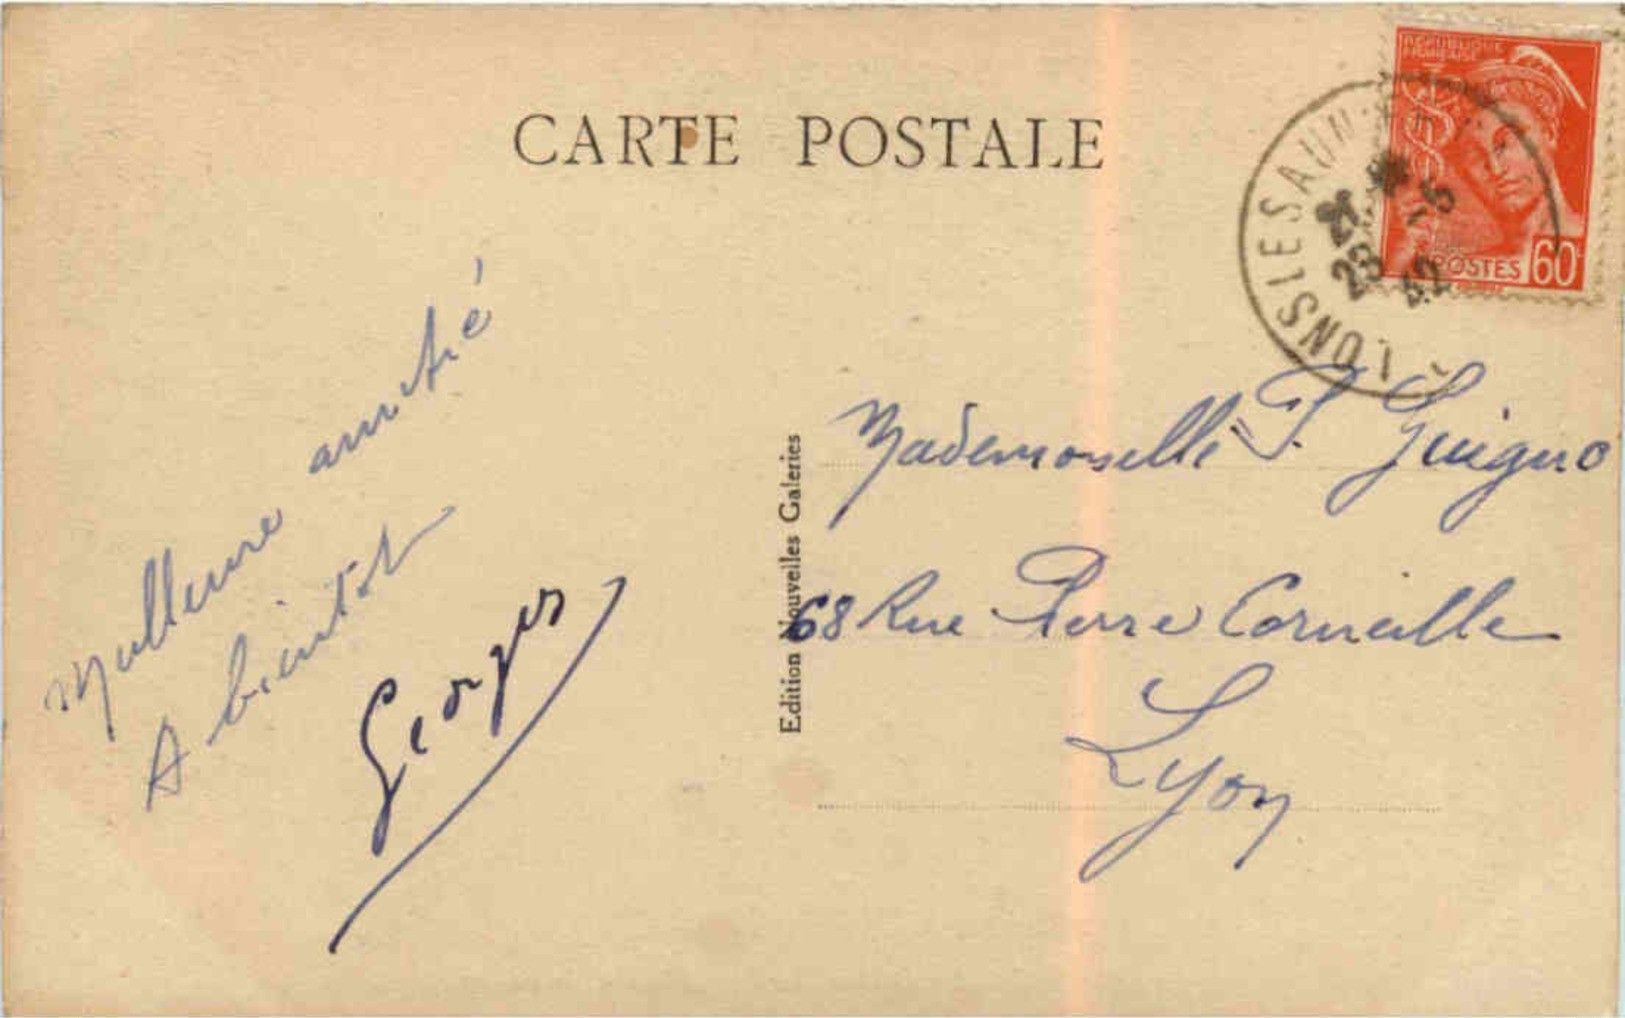 CARTE POSTALE
REPUBLIQUE
FRANÇAISE
POSTES 60
LONS LE SAUNIER
28 -5
42
Meilleure amitié
A bientôt
Georges
Edition Nouvelles Galeries
Mademoiselle
68 Rue Pierre Corneille
Lyon